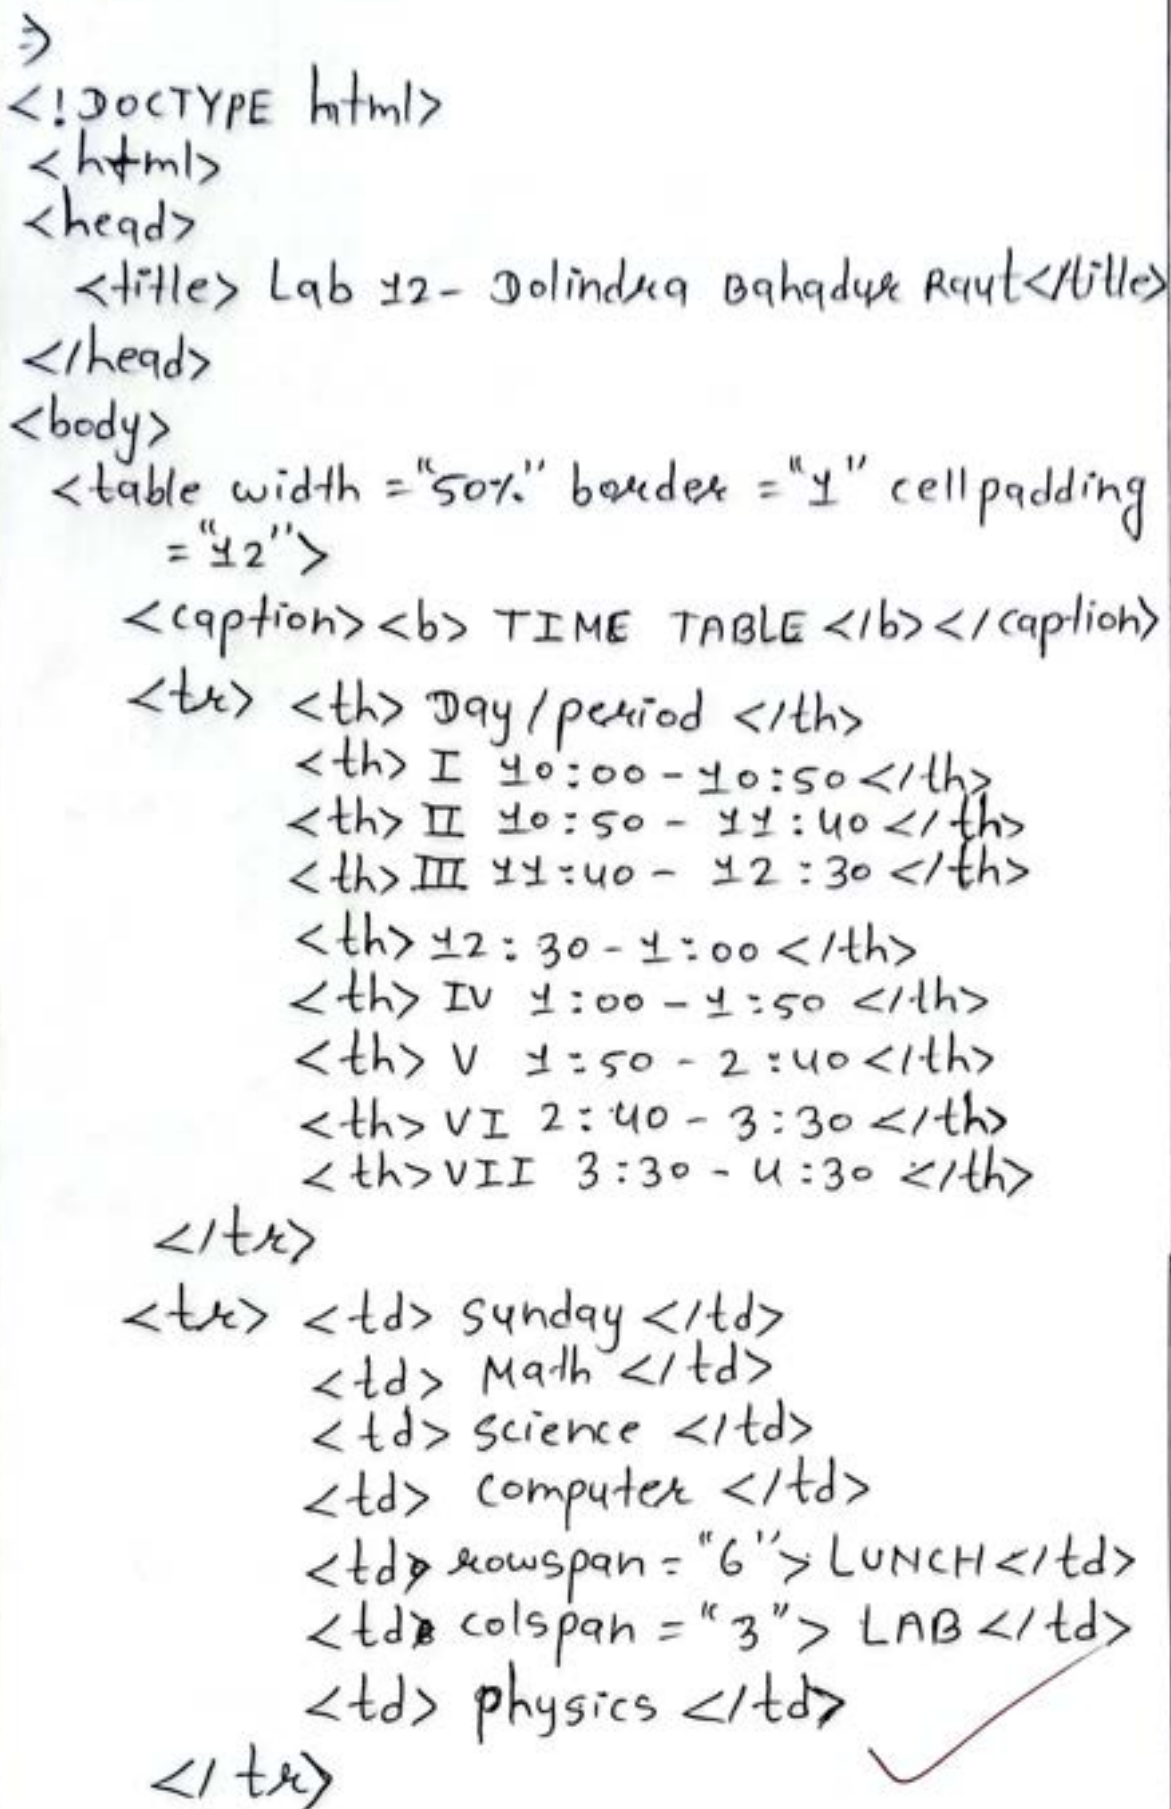 ⇒
<!DOCTYPE html>
<html>
<head>
<title> Lab 12- Dolindra Bahadur Raut</title>
</head>
<body>
<table width ="50%" border ="1" cellpadding
="12">
<caption><b> TIME TABLE </b></caption>
<tr> <th> Day/period </th>
<th> I 10:00-10:50</th>
<th> II 10:50 - 11:40 </th>
<th> III 11:40 - 12:30 </th>
<th> 12:30-1:00 </th>
<th> IV 1:00-1:50 </th>
<th> V 1:50 - 2:40</th>
<th> VI 2:40 - 3:30 </th>
<th> VII 3:30 - 4:30 </th>
</tr>
<tr> <td> Sunday </td>
<td> Math </td>
<td> Science </td>
<td> computer </td>
<td rowspan="6"> LUNCH</td>
<td colspan ="3"> LAB </td>
<td> physics </td>
</tr>